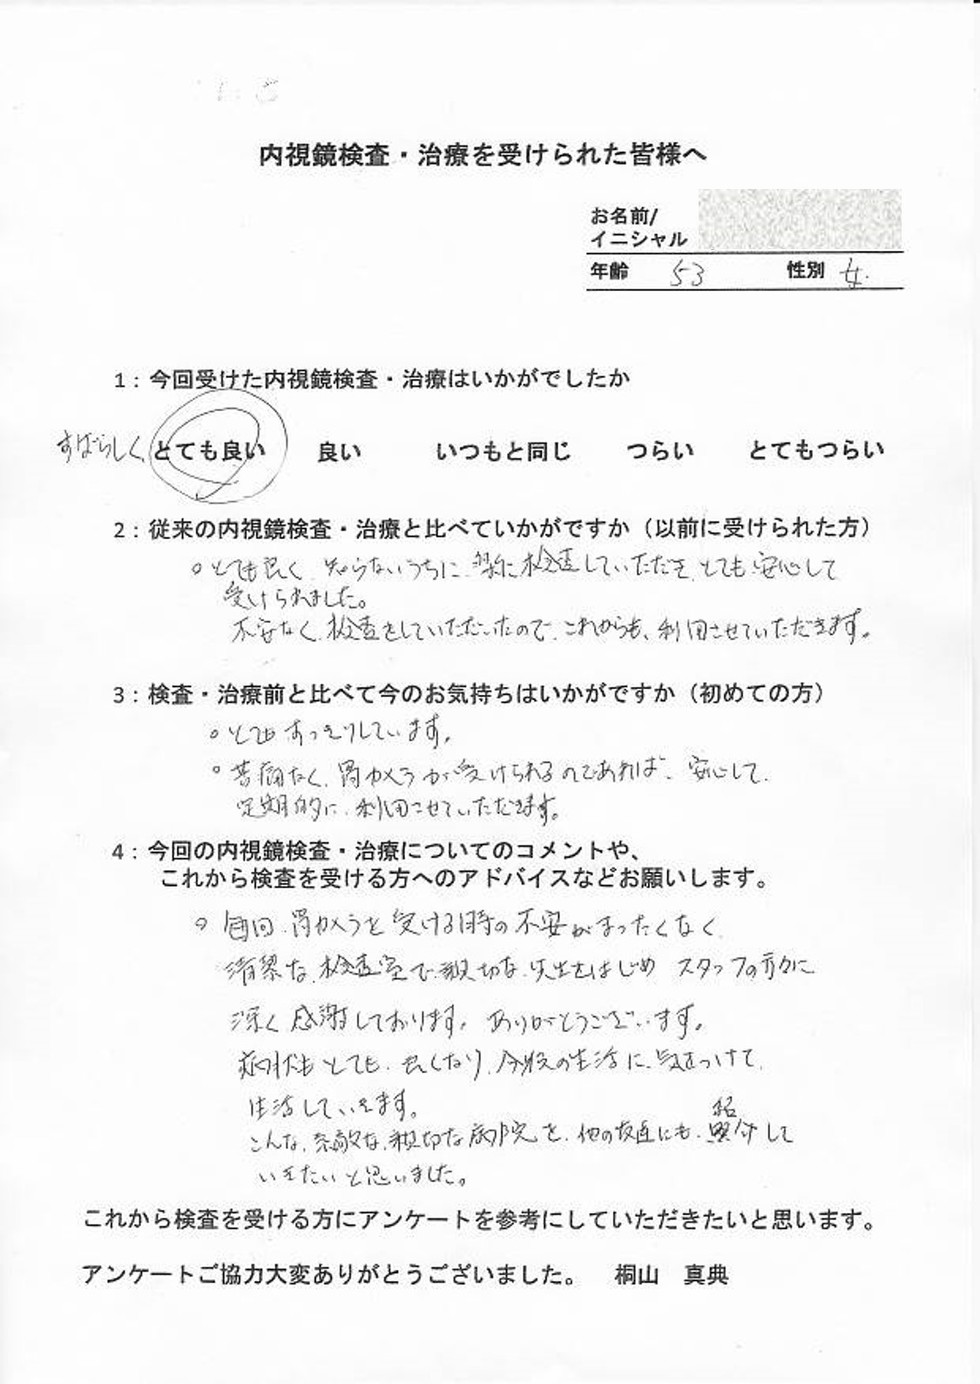 内視鏡検査・治療を受けられた皆様へ
お名前/
イニシャル
年齢 53 性別 女.
1：今回受けた内視鏡検査・治療はいかがでしたか
すばらしく、とても良い 良い いつもと同じ つらい とてもつらい
2：従来の内視鏡検査・治療と比べていかがですか（以前に受けられた方）
○ とても良く、知らないうちに、楽に検査していただき、とても安心して
受けられました。
不安なく、検査をしていただいたので、これからも、利用させていただきます。
3：検査・治療前と比べて今のお気持ちはいかがですか（初めての方）
○ とてもすっきりしています。
○ 苦痛なく、胃カメラが受けられるのであれば、安心して、
定期的に、利用させていただきます。
4：今回の内視鏡検査・治療についてのコメントや、
これから検査を受ける方へのアドバイスなどお願いします。
○ 毎回、胃カメラを受ける時の不安がまったくなく、
清潔な、検査室で、親切な、先生をはじめ スタッフの方々に
深く感謝しております。ありがとうございます。
病状もとても、良くなり、今後の生活に、気をつけて、
生活していきます。
こんな、素敵な、親切な病院を、他の友達にも、紹介して
いきたいと思いました。
これから検査を受ける方にアンケートを参考にしていただきたいと思います。
アンケートご協力大変ありがとうございました。 桐山 真典